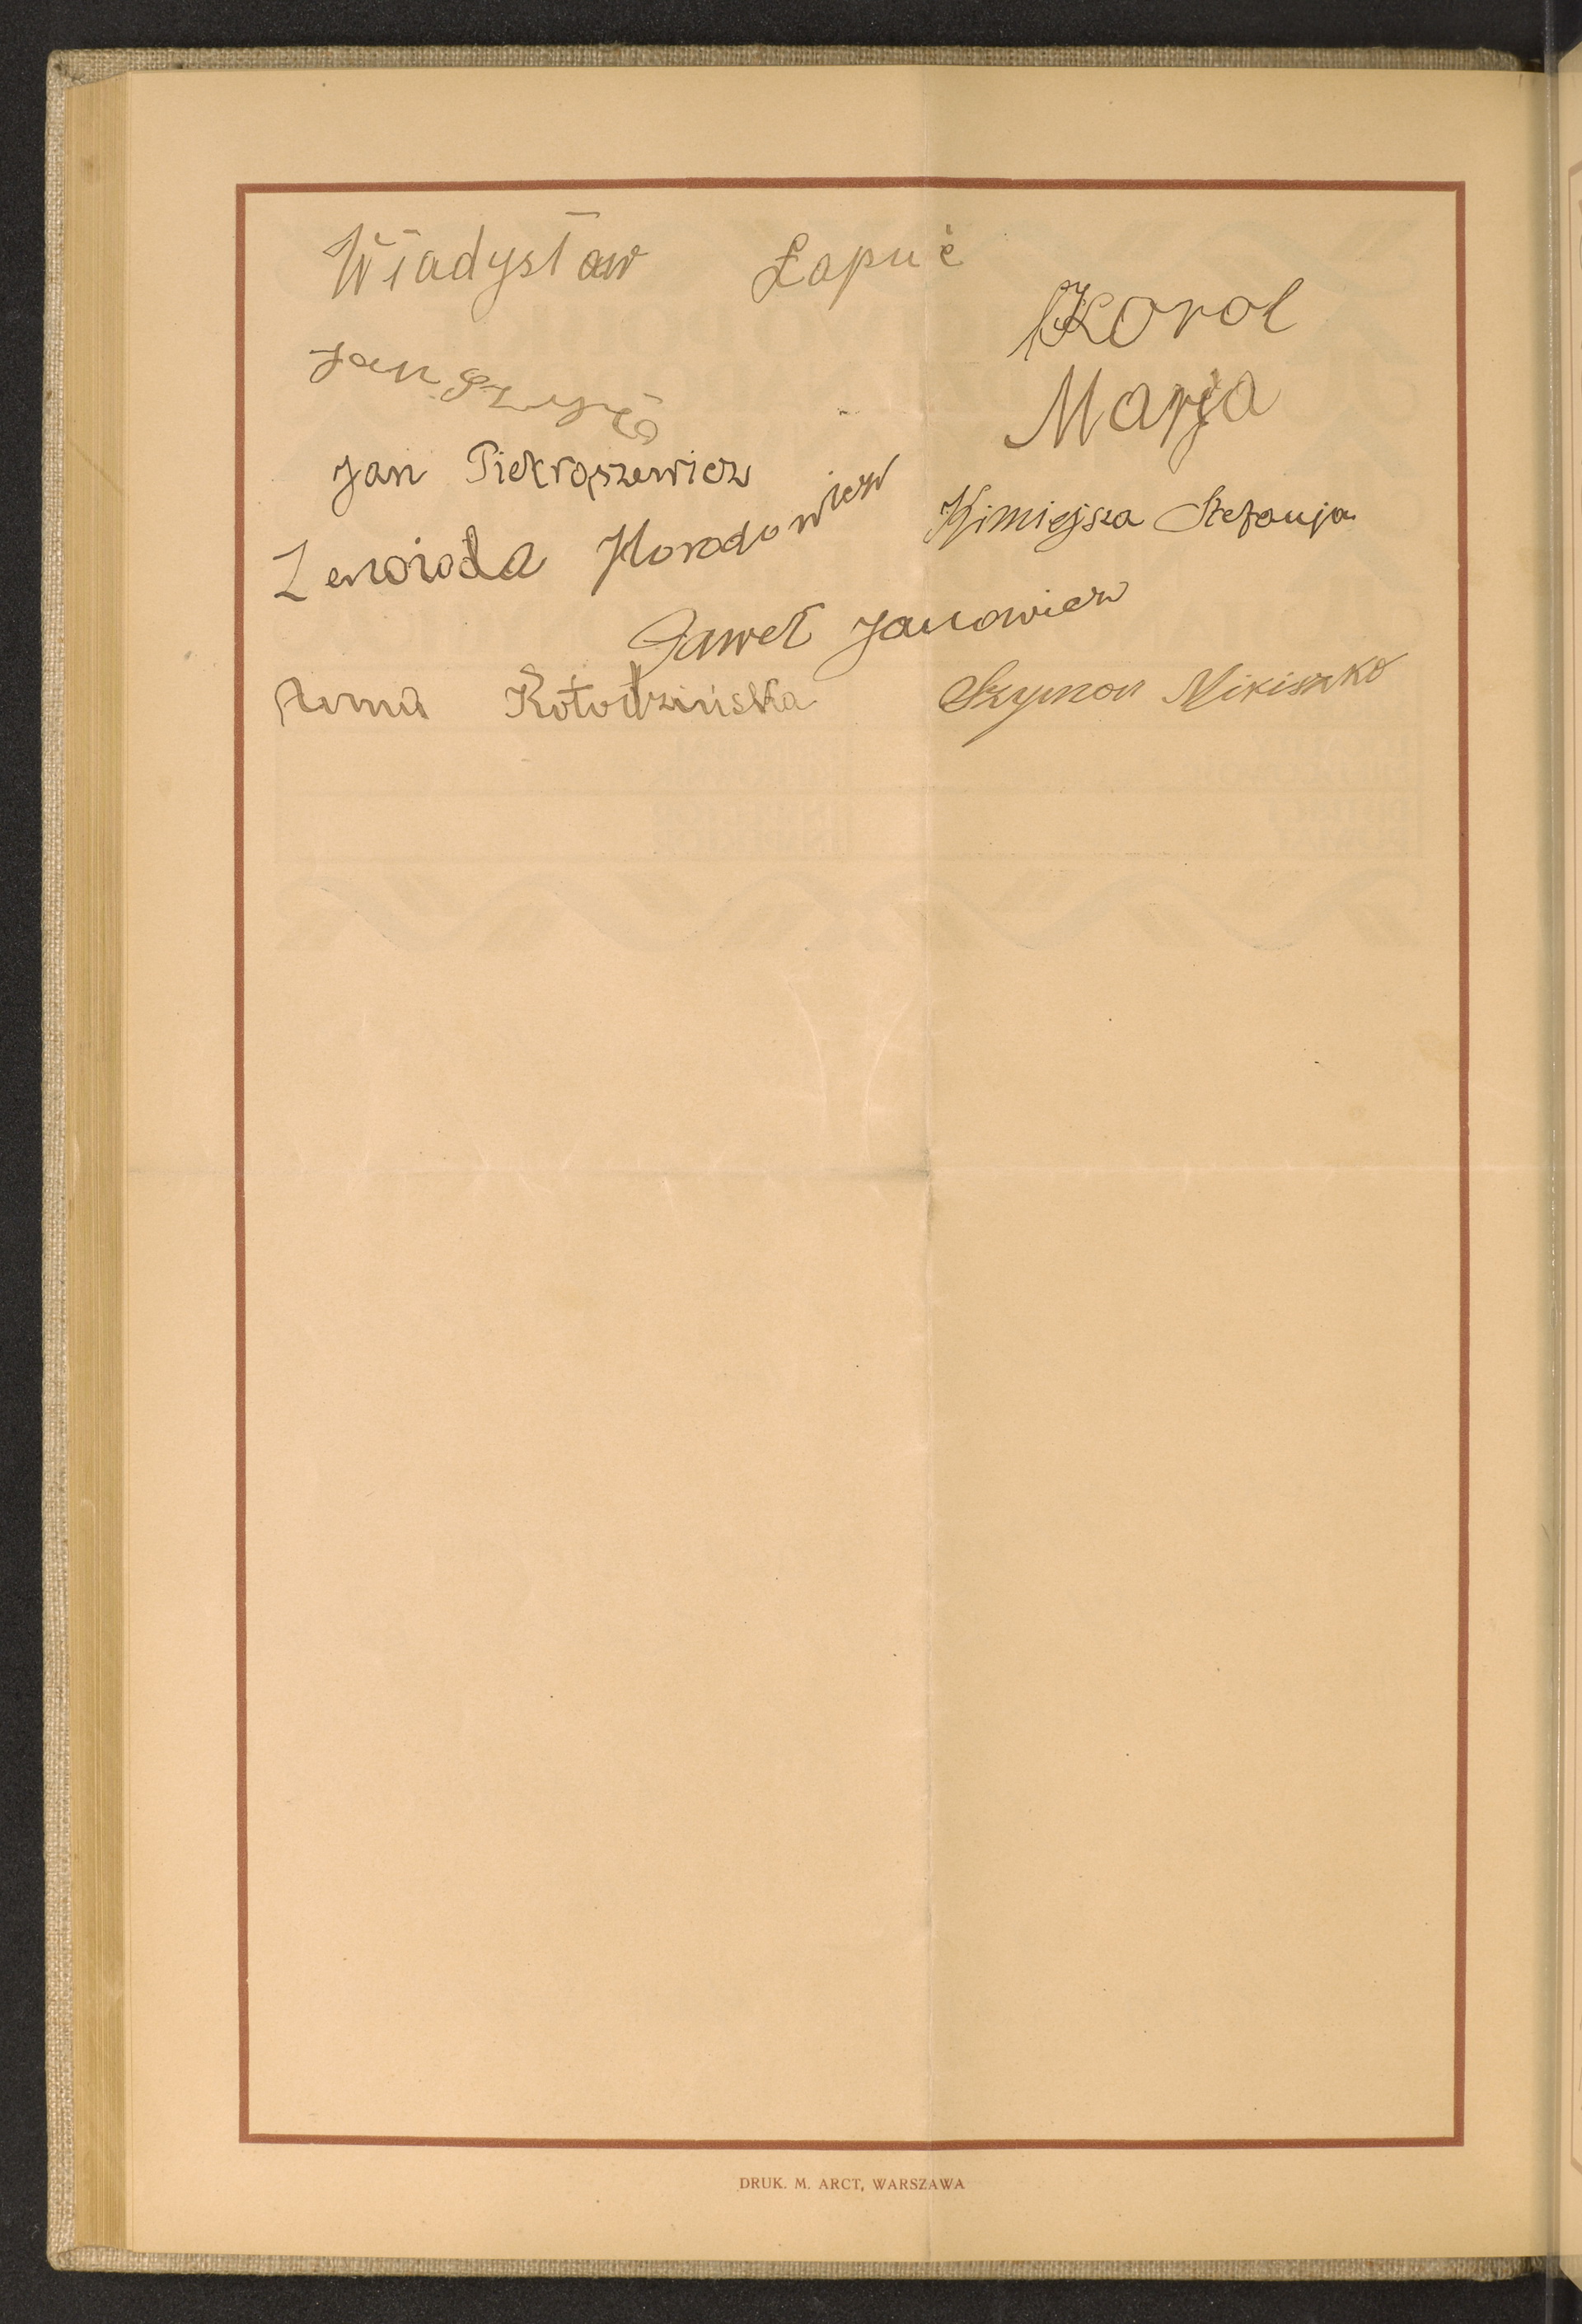 Władysław Łapuć
Korol
Marja
Jan Szyło
Jan Piekraszewicz
Zenoida Horodowicz
Kimiejsza Stefanja
Paweł Janowicz
Anna Kołodzińska
Szymon Mikiszko
DRUK. M. ARCT, WARSZAWA